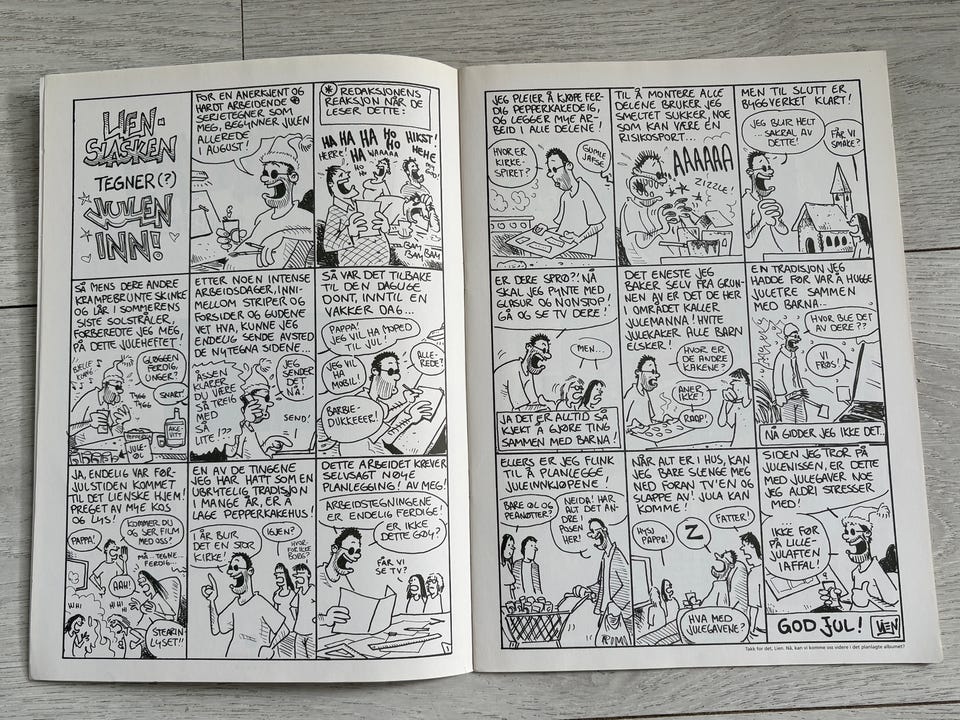 LIEN-
SLASKEN
TEGNER(?)
JULEN
INN!
FOR EN ANERKJENT OG
HARDT ARBEIDENDE ⊛
SERIETEGNER SOM
MEG, BEGYNNER JULEN
ALLEREDE
I AUGUST!
⊛ REDAKSJONENS
REAKSJON NÅR DE
LESER DETTE:
HA HA HA HO
HO
HA
HERRE!
WAAAAA
HIKST!
HEHE
BAM
BAM BAM
SÅ MENS DERE ANDRE
KRAMPEBRUNTE SKINKE
OG LÅR I SOMMERENS
SISTE SOLSTRÅLER,
FORBEREDTE JEG MEG
PÅ DETTE JULEHEFTET!
GLØGGEN
FERDIG,
UNGER?
SNART!
TYGG
TYGG
AKE-
VITT
PEPPER
JULE-
ØL
ETTER NOEN INTENSE
ARBEIDSDAGER, INNI-
MELLOM STRIPER OG
FORSIDER OG GUDENE
VET HVA, KUNNE JEG
ENDELIG SENDE AVSTED
DE NYTEGNA SIDENE...
ÅSSEN
KLARER
DU VÆRE
SÅ TREIG
MED
SÅ
LITE!??
JEG
SENDER
DET
NÅ!
SEND!
SÅ VAR DET TILBAKE
TIL DEN DAGLIGE
DONT, INNTIL EN
VAKKER DAG...
PAPPA!
JEG VIL HA MOPED
TIL JUL!
JEG VIL
HA
MOBIL!
ALLE-
REDE!
BARBIE-
DUKKEEER!
JA, ENDELIG VAR FØR-
JULSTIDEN KOMMET
TIL DET LIENSKE HJEM!
PREGET AV MYE KOS
OG LYS!
PAPPA!
KOMMER DU
OG SER FILM
MED OSS?
MÅ...TEGNE...
FERDIG...
AAH!
WHI
HI
STEARIN-
LYSET!!
EN AV DE TINGENE
JEG HAR HATT SOM
UBRYTELIG TRADISJON
I MANGE ÅR, ER Å
LAGE PEPPERKAKEHUS!
I ÅR BLIR
DET EN STOR
KIRKE!
IGJEN?
HVOR-
FOR IKKE
BORDELL?
DETTE ARBEIDET KREVER
SELVSAGT NØYE
PLANLEGGING! AV MEG!
ARBEIDSTEGNINGENE
ER ENDELIG FERDIGE!
ER IKKE
DETTE GØY?
FÅR VI
SE TV?
JEG PLEIER Å KJØPE FER-
DIG PEPPERKAKEDEIG,
OG LEGGER MYE AR-
BEID I ALLE DELENE!
HVOR ER
KIRKE-
SPIRET?
GUMLE
JAFSE
TIL Å MONTERE ALLE
DELENE BRUKER JEG
SMELTET SUKKER, NOE
SOM KAN VÆRE EN
RISIKOSPORT...
AAAAAA
ZIZZLE!
MEN TIL SLUTT ER
BYGGVERKET KLART!
JEG BLIR HELT
...SAKRAL AV
DETTE!
FÅR VI
SMAKE?
ER DERE SPRØ?! NÅ
SKAL JEG PYNTE MED
GLASUR OG NONSTOP!
GÅ OG SE TV DERE!
MEN...
JA DET ER ALLTID SÅ
KJEKT Å GJØRE TING
SAMMEN MED BARNA!
DET ENESTE JEG
BAKER SELV FRA GRUN-
NEN AV ER DET DE HER
I OMRÅDET KALLER
JULEMANNA! HVITE
JULEKAKER ALLE BARN
ELSKER!
HVOR ER
DE ANDRE
KAKENE?
ANER
IKKE!
RAAP!
EN TRADISJON JEG
HADDE FØR VAR Å HUGGE
JULETRE SAMMEN
MED BARNA...
HVOR BLE DET
AV DERE??
VI
FRØS!
NÅ GIDDER JEG IKKE DET.
ELLERS ER JEG FLINK
TIL Å PLANLEGGE
JULEINNKJØPENE!
BARE ØL OG
PEANØTTER?
NEIDA! HAR
ALT DET AN-
DRE I
POSEN
HER!
NÅR ALT ER I HUS, KAN
JEG BARE SLENGE MEG
NED FORAN TV'EN OG
SLAPPE AV! JULA KAN
KOMME!
HYSJ
PAPPA!
Z
FATTER!
HVA MED
JULEGAVENE?
SIDEN JEG TROR PÅ
JULENISSEN, ER DETTE
MED JULEGAVER NOE
JEG ALDRI STRESSER
MED!
IKKE FØR
PÅ LILLE-
JULAFTEN
IAFFAL!
GOD JUL!
LIEN
Takk for det, Lien. Nå, kan vi komme oss videre i det planlagte albumet?